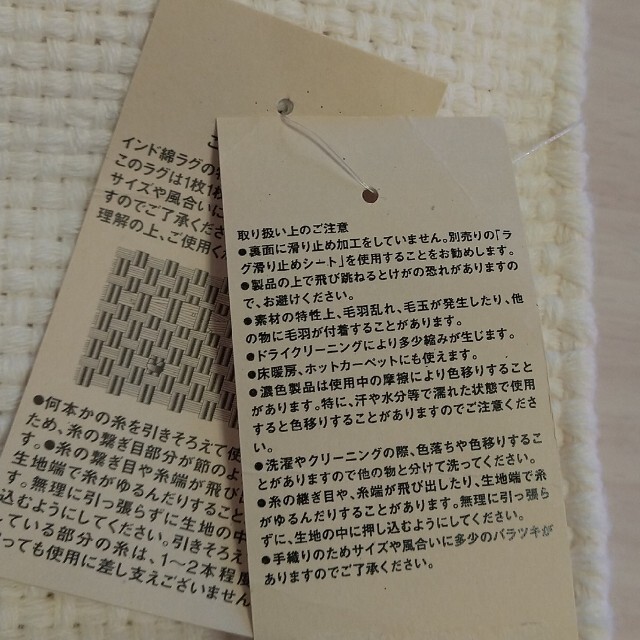 インド綿ラグの
このラグは1枚1
サイズや風合いに
すのでご了承くださ
理解の上、ご使用く
●何本かの糸を引きそろえて使
ため、糸の繋ぎ目部分が節のよ
す。●糸の繋ぎ目や糸端が飛び
生地端で糸がゆるんだりすること
す。無理に引っ張らずに生地の中
込むようにしてください。引きそろえ
ている部分の糸は、1〜2本程度
っても使用に差し支えございません
取り扱い上のご注意
●裏面に滑り止め加工をしていません。別売りの「ラ
グ滑り止めシート」を使用することをお勧めします。
●製品の上で飛び跳ねるとけがの恐れがありますの
で、お避けください。
●素材の特性上、毛羽乱れ、毛玉が発生したり、他
の物に毛羽が付着することがあります。
●ドライクリーニングにより多少縮みが生じます。
●床暖房、ホットカーペットにも使えます。
●濃色製品は使用中の摩擦により色移りすること
があります。特に、汗や水分等で濡れた状態で使用
すると色移りすることがありますのでご注意くださ
い。
●洗濯やクリーニングの際、色落ちや色移りするこ
とがありますので他の物と分けて洗ってください。
●糸の継ぎ目や、糸端が飛び出したり、生地端で糸
がゆるんだりすることがあります。無理に引っ張ら
ずに、生地の中に押し込むようにしてください。
●手織りのためサイズや風合いに多少のバラツキが
ありますのでご了承ください。